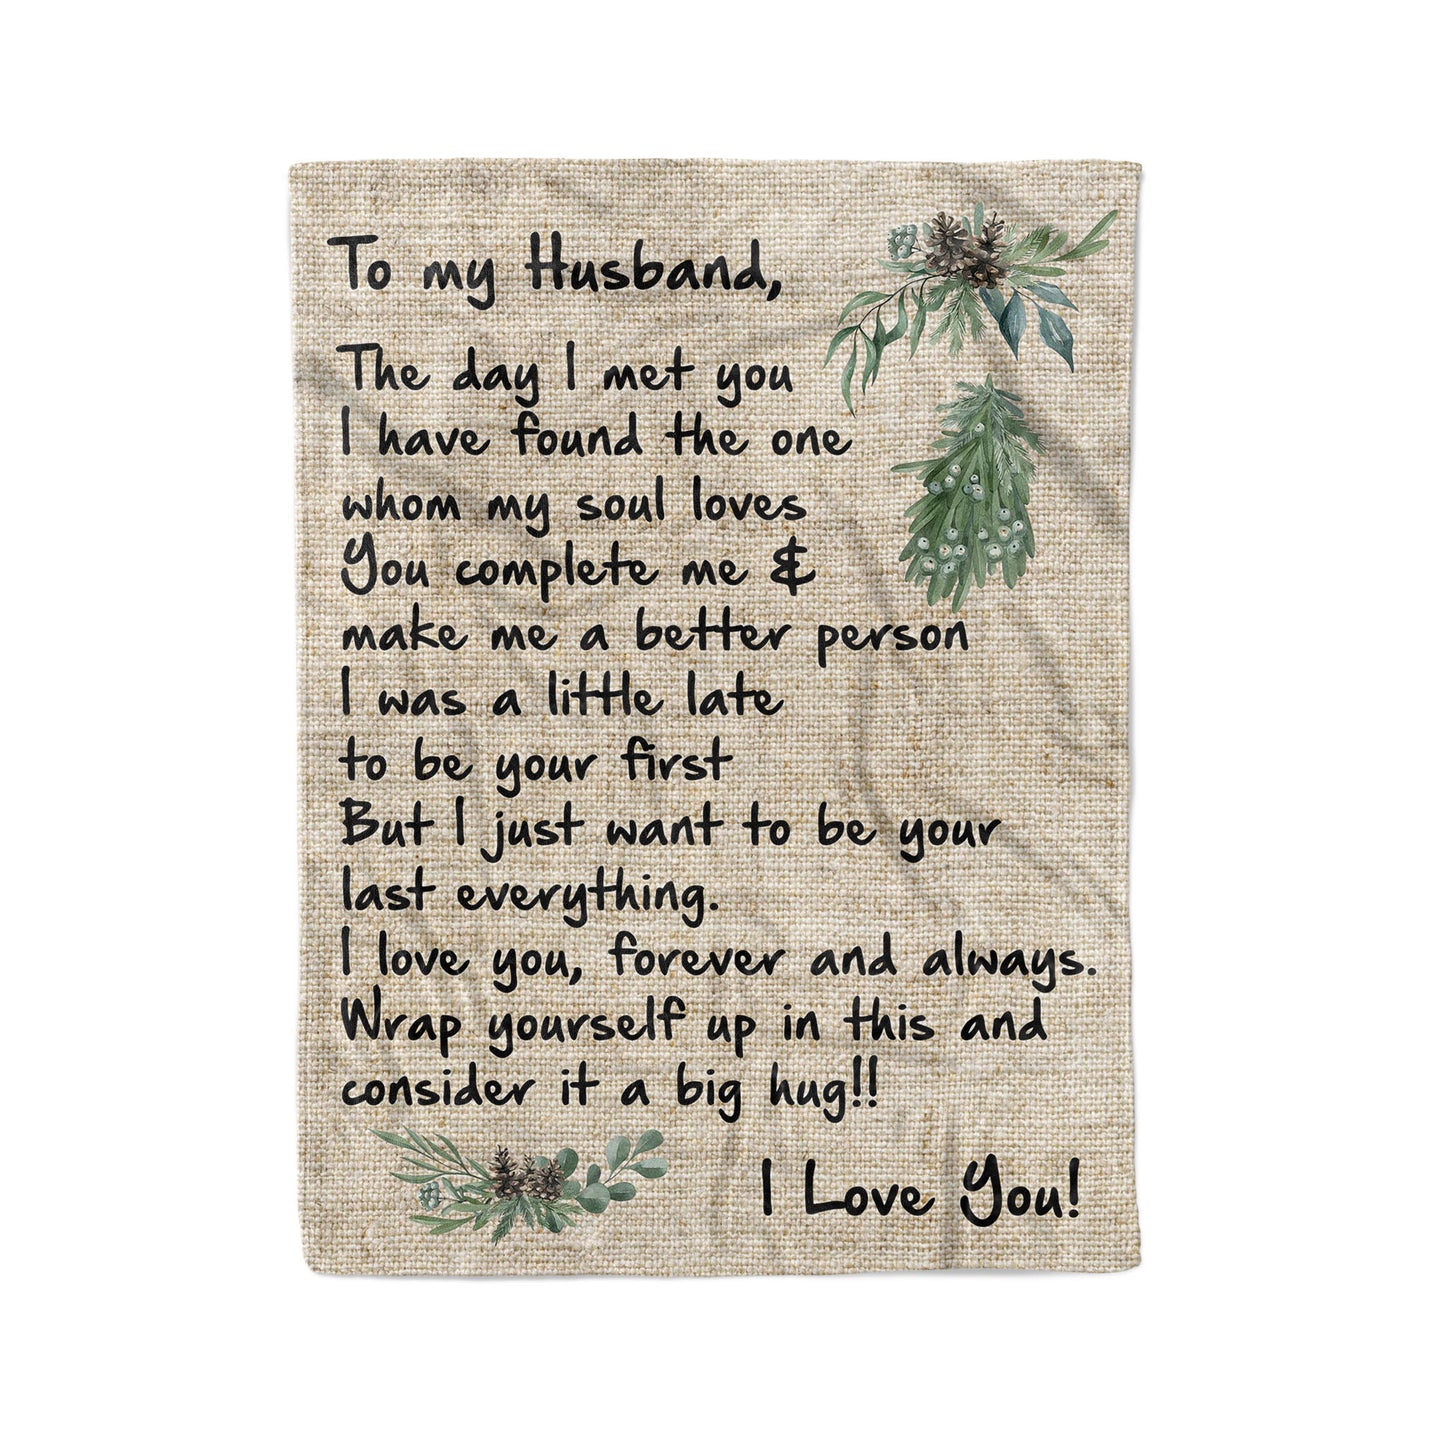 To my Husband,
The day I met you
I have found the one
whom my soul loves
You complete me &
make me a better person
I was a little late
to be your first
But I just want to be your
last everything.
I love you, forever and always.
Wrap yourself up in this and
consider it a big hug!!
I Love You!